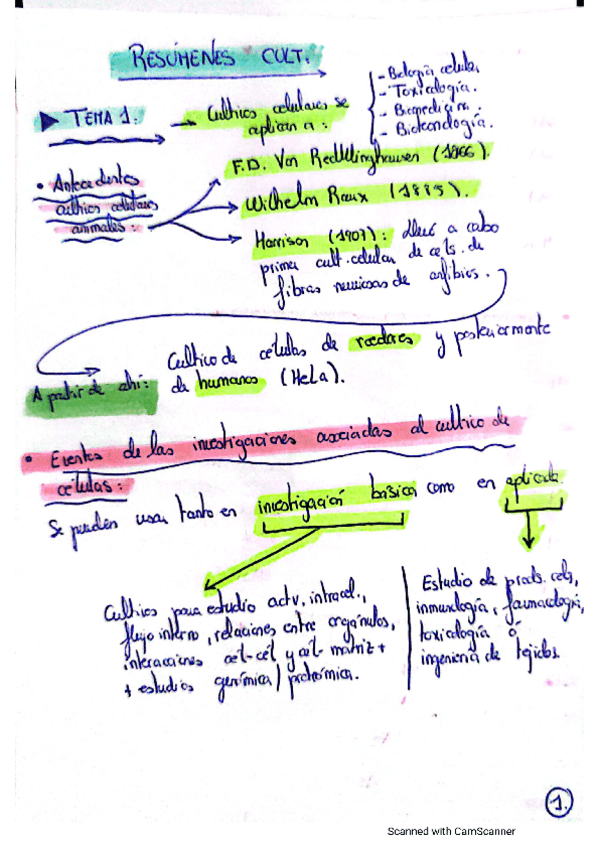 RESÚMENES CULT.
TEMA 1.
→ Cultivos celulares se
aplican a:
- Biología celular.
- Toxicología.
- Biomedicina.
- Biotecnología.
• Antecedentes
cultivos celulares
animales:
F.D. Von Recklinghausen (1866).
Wilhelm Roux (1885).
Harrison (1907): Llevó a cabo
primer cult. celular de cels. de
fibras nerviosas de anfibios.
A partir de ahí:
Cultivo de células de roedores y posteriormente
de humanos (HeLa).
• Eventos de las investigaciones asociadas al cultivo de
células:
Se pueden usar tanto en investigación básica como en aplicada.
Cultivos para estudio activ. intracel.,
flujo interno, relaciones entre orgánulos,
interacciones cél-cél y cél-matriz +
+ estudios genómica/proteómica.
Estudio de prods. cels,
inmunología, farmacología,
toxicología ó
ingeniería de tejidos.
1.
Scanned with CamScanner